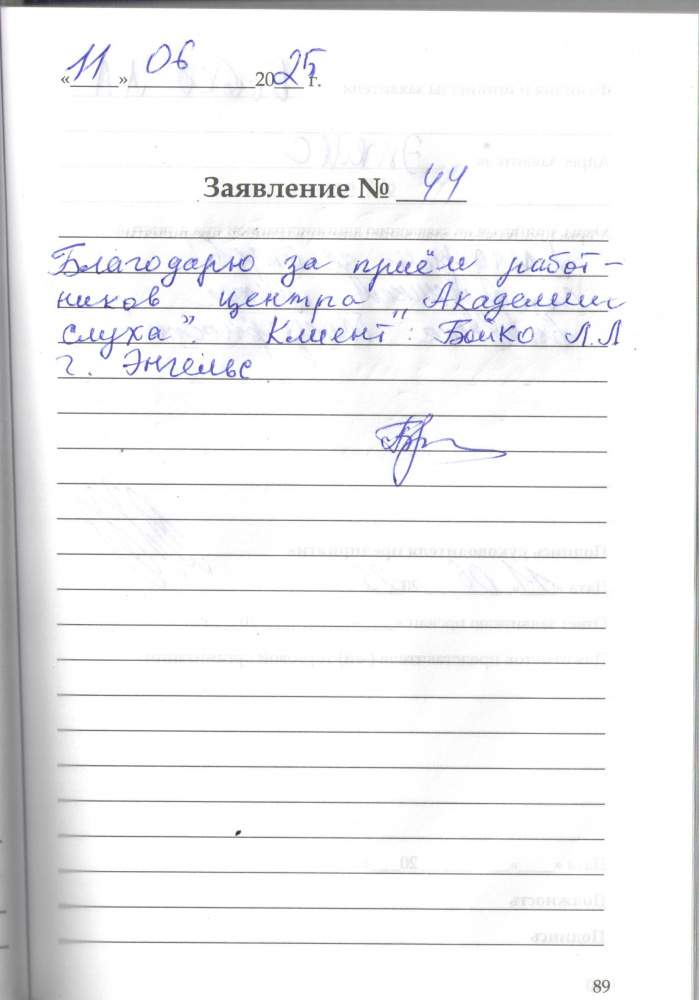 «11» 06 2025 г.
Заявление № 44
Благодарю за приём работ-
ников центра „Академии
слуха”. Клиент: Бойко Л.Л
г. Энгельс
89